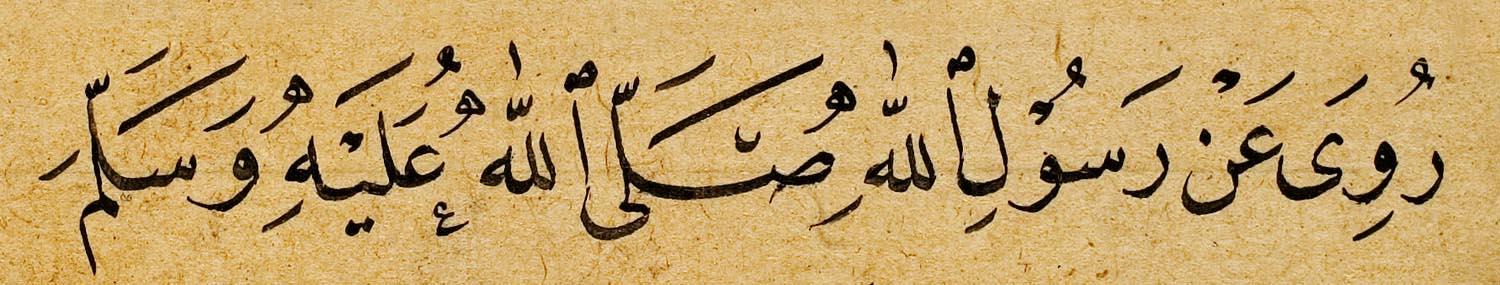 رُوِىَ عَنْ رَسُوْلِ ٱللّٰهِ صَلَّى ٱللّٰهُ عَلَيْهِ وَسَلَّمَ